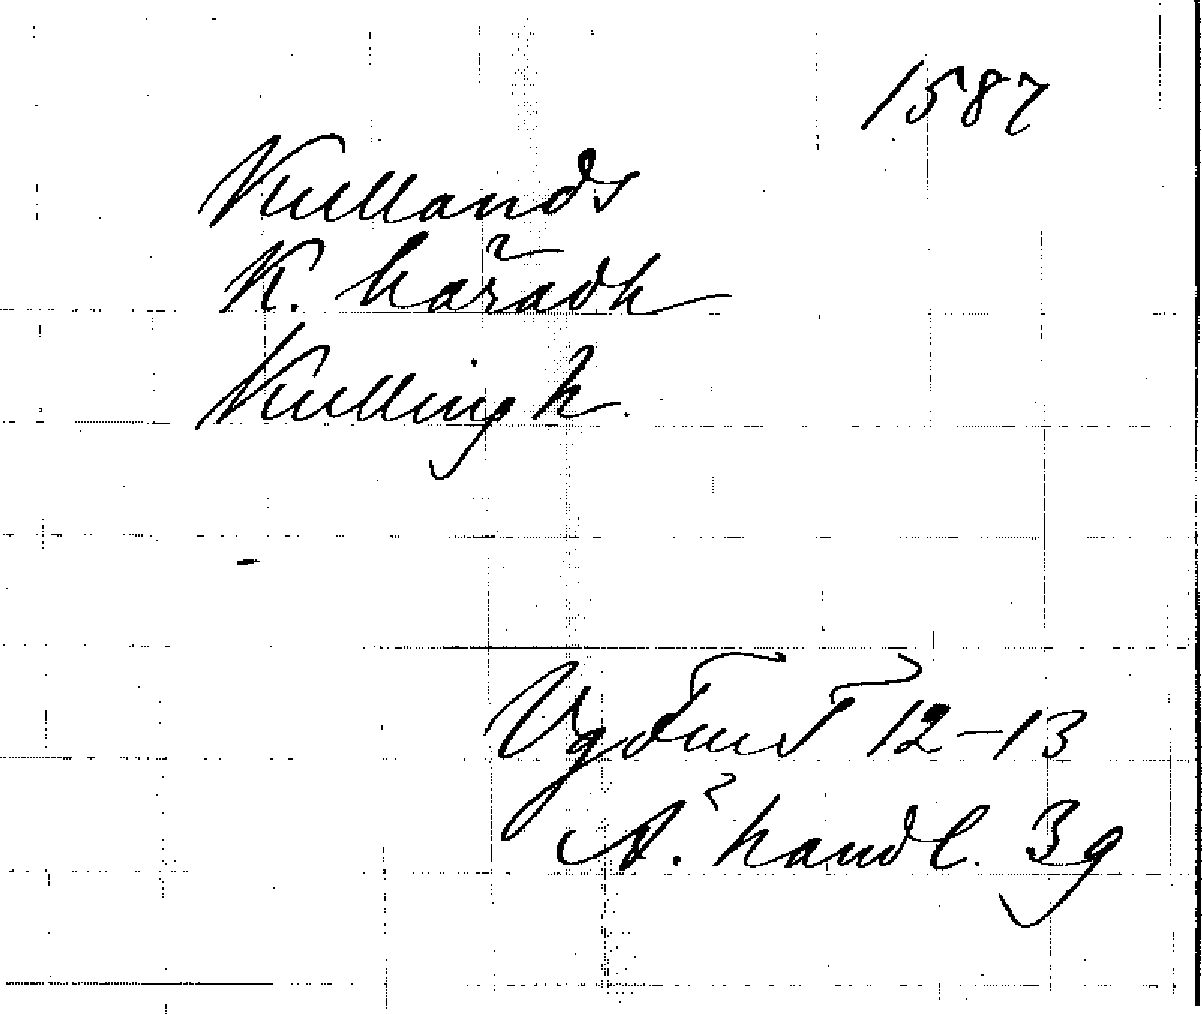 1587
Kullands
K. häradh
Kulling h.
Vg Tent 12-13
Ä. handl. 39